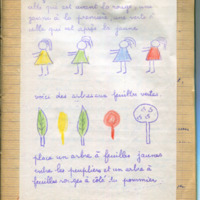 celle qui est avant la rouge, une
jaune à la première, une verte à
celle qui est après la jaune
voici des arbres aux feuilles vertes
place un arbre à feuilles jaunes
entre les peupliers et un arbre à
feuilles rouges à côté du pommier